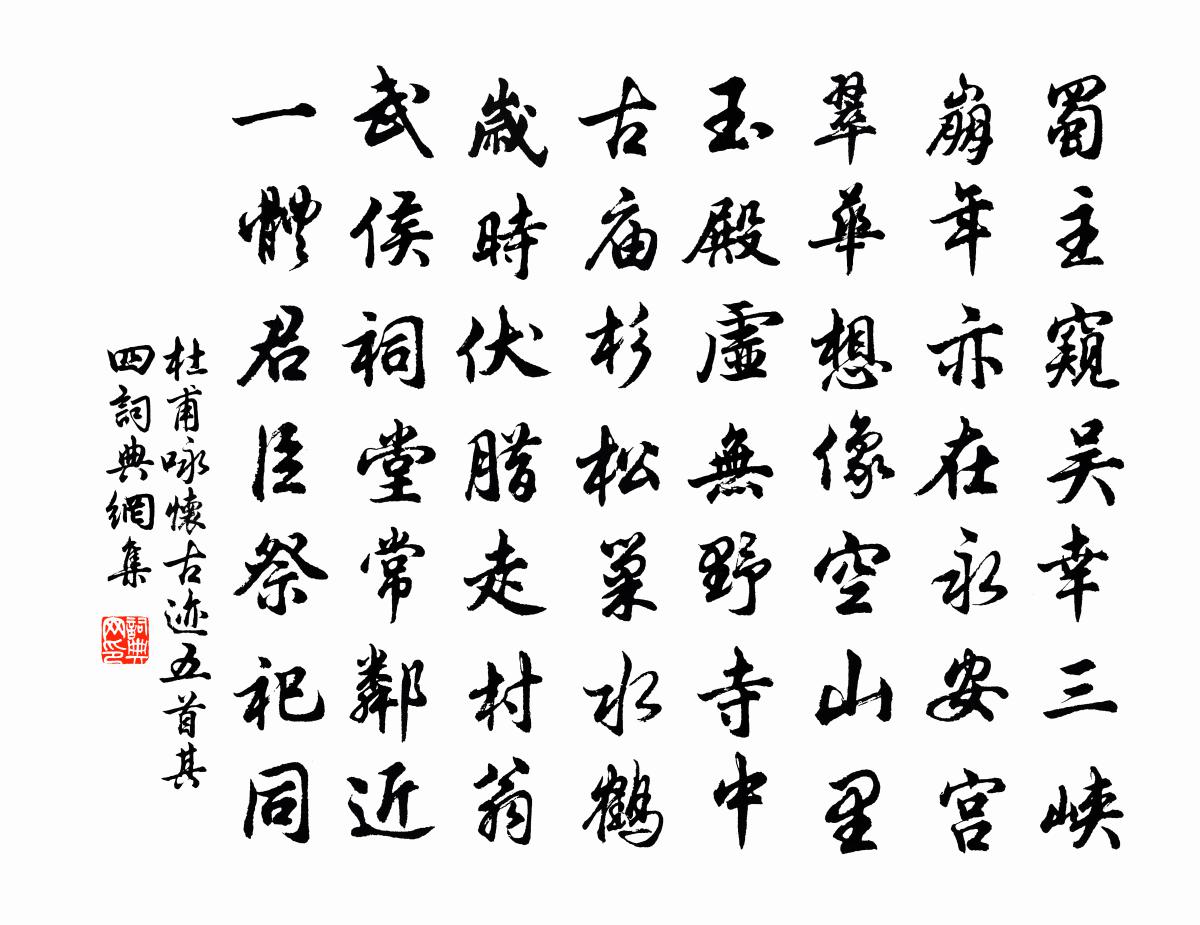 蜀主窺吴幸三峡
崩年亦在永安宫
翠華想像空山里
玉殿虚無野寺中
古庙杉松巢水鶴
歲時伏腊走村翁
武侯祠堂常鄰近
一體君臣祭祀同
杜甫咏懷古迹五首其
四詞典網集
詞典
网印